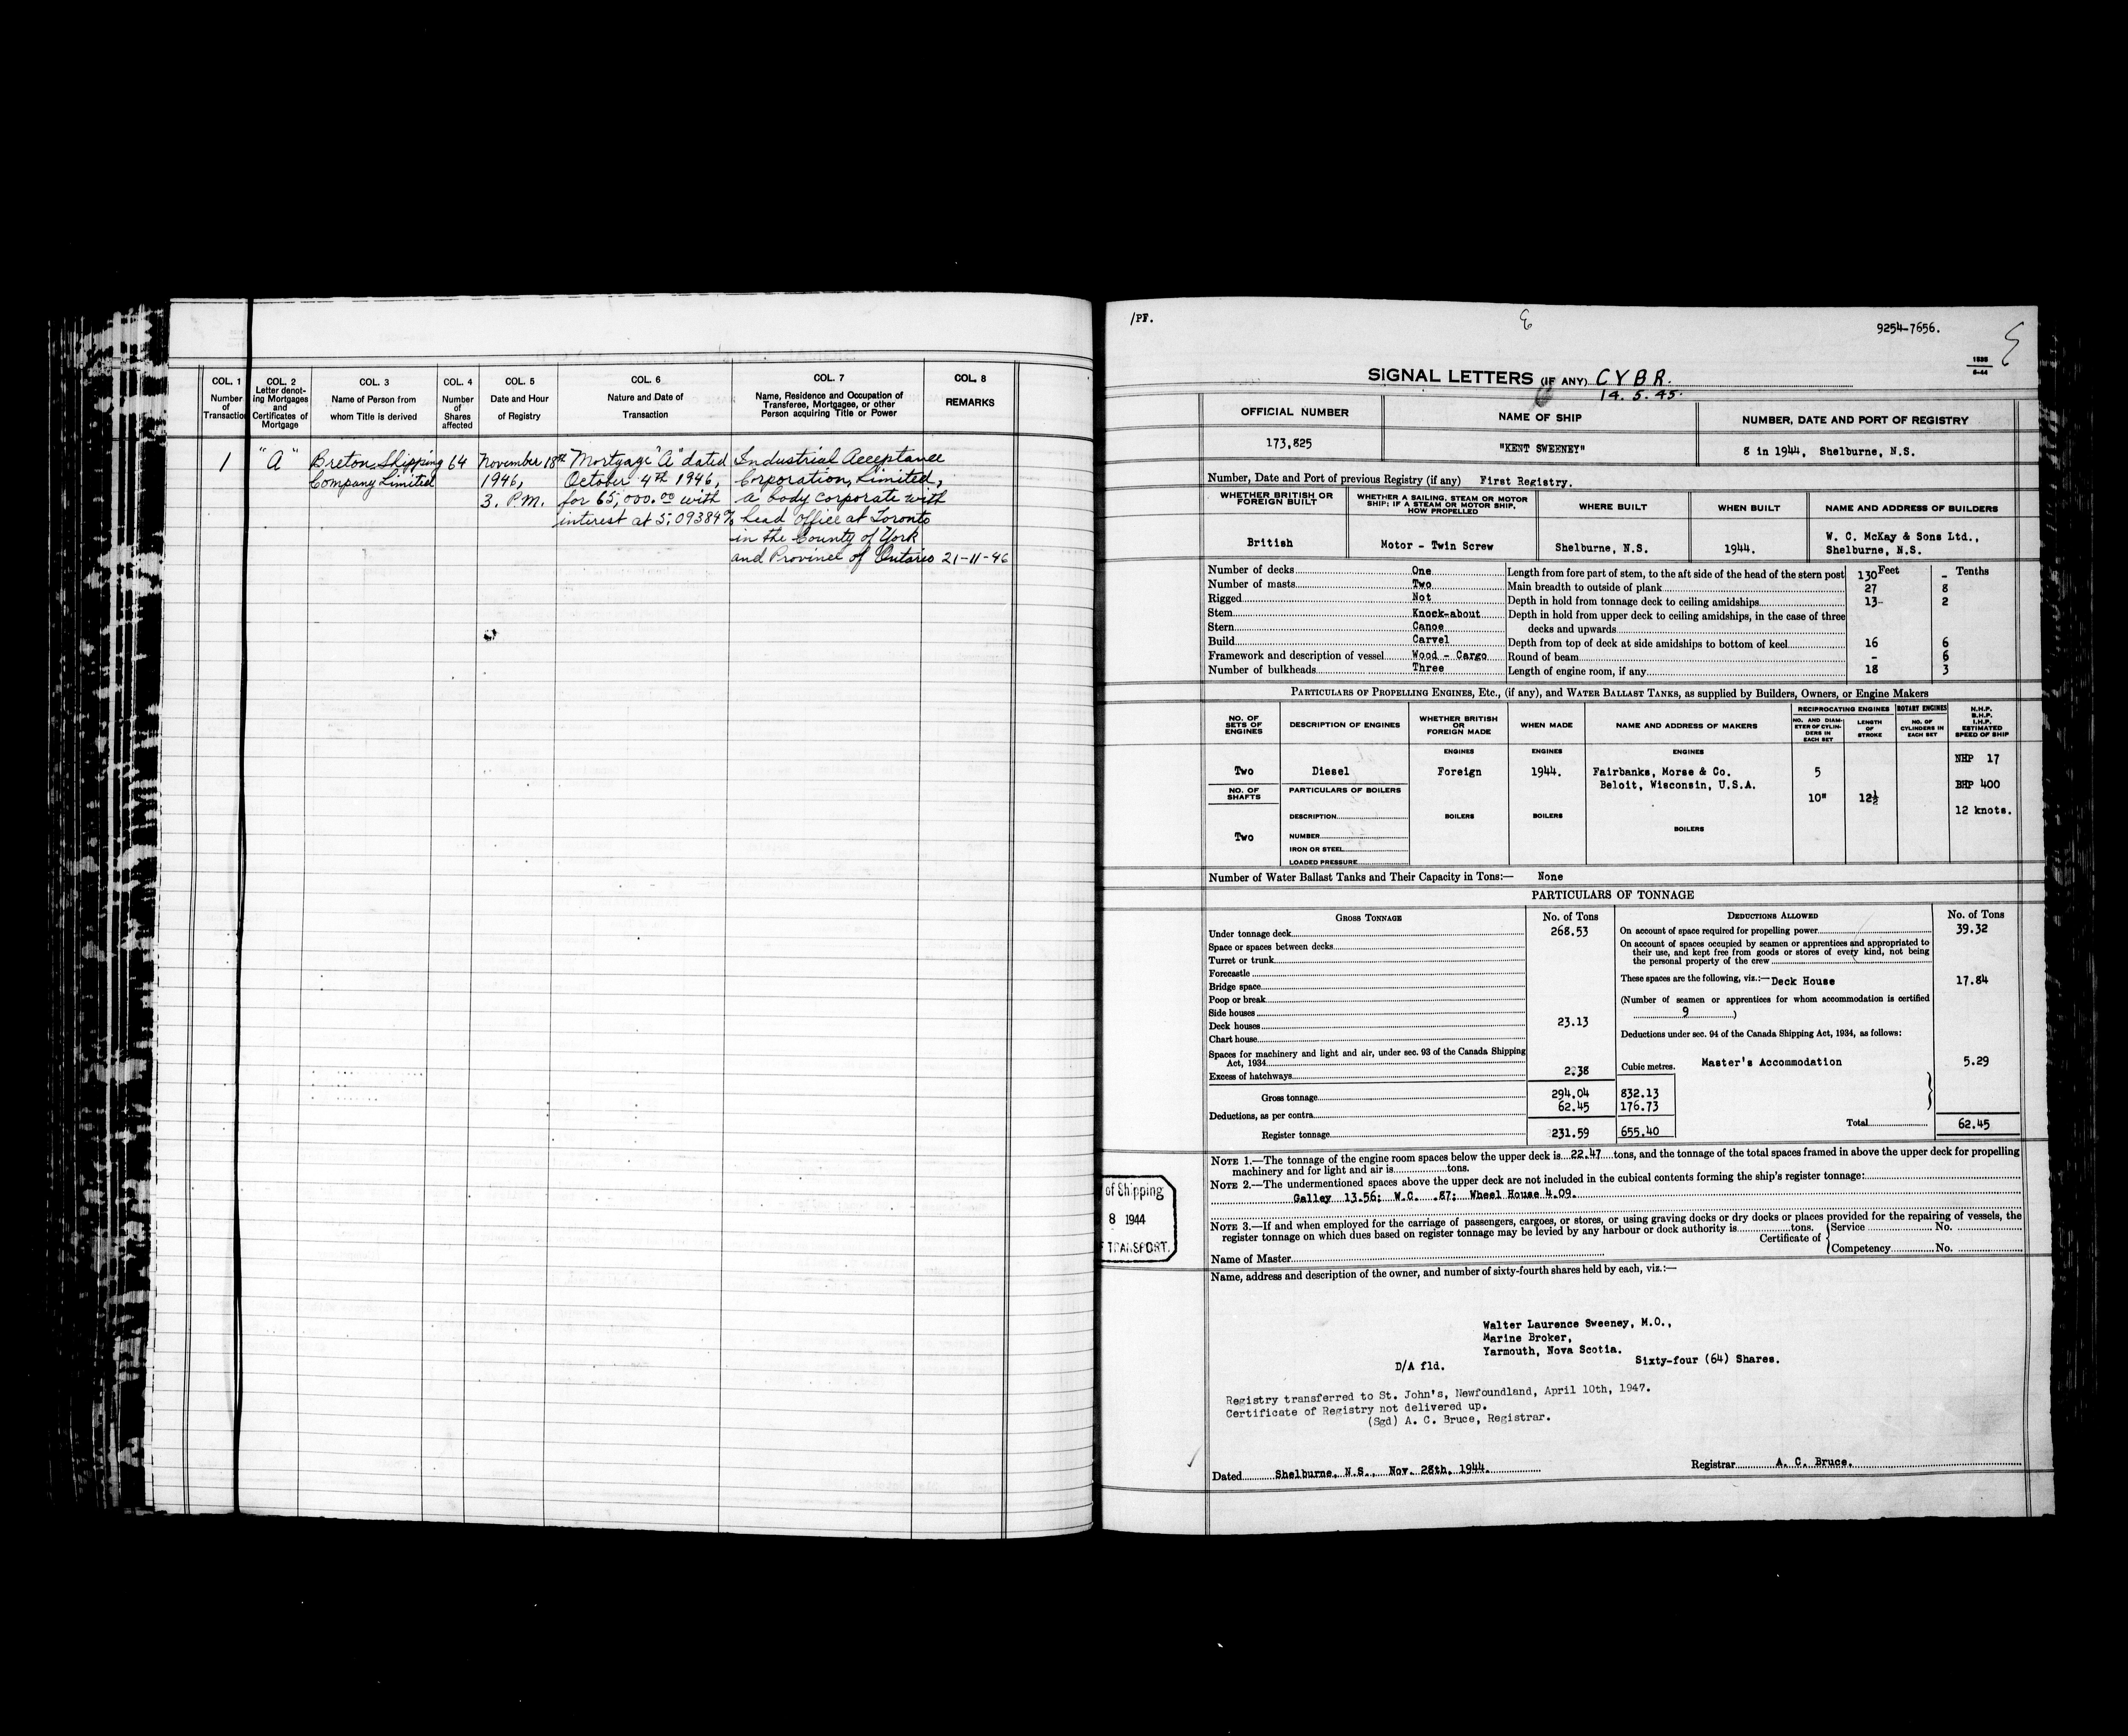 COL. 1 Number of Transaction
COL. 2 Letter denoting Mortgages and Certificates of Mortgage
COL. 3 Name of Person from whom Title is derived
COL. 4 Number of Shares affected
COL. 5 Date and Hour of Registry
COL. 6 Nature and Date of Transaction
COL. 7 Name, Residence and Occupation of Transferee, Mortgagee, or other Person acquiring Title or Power
COL. 8 REMARKS
1 "A" Breton Shipping 64 November 18th Mortgage "A" dated Industrial Acceptance
Company Limited 1946, October 4th 1946, Corporation, Limited,
3. P.M. for 65,000.00 with a body corporate with
interest at 5.09384% head office at Toronto
in the County of York
and Province of Ontario 21-11-46
/PF.
9254-7656.
SIGNAL LETTERS (IF ANY) CYBR.
14.5.45.
OFFICIAL NUMBER NAME OF SHIP NUMBER, DATE AND PORT OF REGISTRY
173,825 "KENT SWEENEY" 8 in 1944, Shelburne, N.S.
Number, Date and Port of previous Registry (if any) First Registry.
WHETHER BRITISH OR FOREIGN BUILT
WHETHER A SAILING, STEAM OR MOTOR SHIP; IF A STEAM OR MOTOR SHIP, HOW PROPELLED
WHERE BUILT
WHEN BUILT
NAME AND ADDRESS OF BUILDERS
British Motor - Twin Screw Shelburne, N.S. 1944. W. C. McKay & Sons Ltd.,
Shelburne, N.S.
Number of decks One Length from fore part of stem, to the aft side of the head of the stern post 130 Feet - Tenths
Number of masts Two Main breadth to outside of plank 27 8
Rigged Not Depth in hold from tonnage deck to ceiling amidships 13- 2
Stem Knock-about Depth in hold from upper deck to ceiling amidships, in the case of three
Stern Canoe decks and upwards
Build Carvel Depth from top of deck at side amidships to bottom of keel 16 6
Framework and description of vessel Wood - Cargo Round of beam - 6
Number of bulkheads Three Length of engine room, if any 18 3
PARTICULARS OF PROPELLING ENGINES, ETC., (if any), and WATER BALLAST TANKS, as supplied by Builders, Owners, or Engine Makers
NO. OF SETS OF ENGINES
DESCRIPTION OF ENGINES
WHETHER BRITISH OR FOREIGN MADE
WHEN MADE
NAME AND ADDRESS OF MAKERS
RECIPROCATING ENGINES
NO. AND DIAMETER OF CYLINDERS IN EACH SET
LENGTH OF STROKE
ROTARY ENGINES
NO. OF CYLINDERS IN EACH SET
N.H.P. B.H.P. I.H.P. ESTIMATED SPEED OF SHIP
ENGINES ENGINES ENGINES
NHP 17
Two Diesel Foreign 1944. Fairbanks, Morse & Co. 5
Beloit, Wisconsin, U.S.A. BHP 400
NO. OF SHAFTS PARTICULARS OF BOILERS
10" 12½
12 knots.
DESCRIPTION BOILERS BOILERS
BOILERS
Two NUMBER
IRON OR STEEL
LOADED PRESSURE
Number of Water Ballast Tanks and Their Capacity in Tons:— None
PARTICULARS OF TONNAGE
GROSS TONNAGE No. of Tons DEDUCTIONS ALLOWED No. of Tons
Under tonnage deck 268.53 On account of space required for propelling power 39.32
Space or spaces between decks On account of spaces occupied by seamen or apprentices and appropriated to
their use, and kept free from goods or stores of every kind, not being
Turret or trunk the personal property of the crew
Forecastle
Bridge space These spaces are the following, viz.:— Deck House 17.84
Poop or break (Number of seamen or apprentices for whom accommodation is certified
Side houses 9 )
Deck houses 23.13
Chart house Deductions under sec. 94 of the Canada Shipping Act, 1934, as follows:
Spaces for machinery and light and air, under sec. 93 of the Canada Shipping
Act, 1934
Excess of hatchways 2.38 Cubic metres. Master's Accommodation 5.29
Gross tonnage 294.04 832.13
Deductions, as per contra 62.45 176.73
Register tonnage 231.59 655.40 Total 62.45
NOTE 1.—The tonnage of the engine room spaces below the upper deck is 22.47 tons, and the tonnage of the total spaces framed in above the upper deck for propelling
machinery and for light and air is tons.
NOTE 2.—The undermentioned spaces above the upper deck are not included in the cubical contents forming the ship's register tonnage:
Galley 13.56; W.C. .87; Wheel House 4.09.
NOTE 3.—If and when employed for the carriage of passengers, cargoes, or stores, or using graving docks or dry docks or places provided for the repairing of vessels, the
register tonnage on which dues based on register tonnage may be levied by any harbour or dock authority is tons.
Certificate of Service No.
Competency No.
Name of Master
of Shipping
8 1944
TRANSPORT.
Name, address and description of the owner, and number of sixty-fourth shares held by each, viz.:—
Walter Laurence Sweeney, M.O.,
Marine Broker,
Yarmouth, Nova Scotia.
D/A fld. Sixty-four (64) Shares.
Registry transferred to St. John's, Newfoundland, April 10th, 1947.
Certificate of Registry not delivered up.
(Sgd) A. C. Bruce, Registrar.
Dated Shelburne, N.S., Nov. 28th, 1944. Registrar A. C. Bruce.